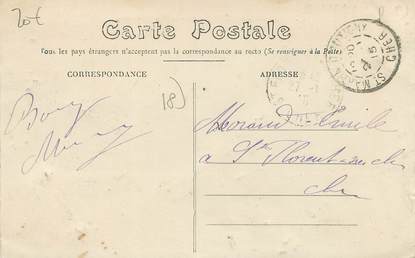 20f
Carte Postale
Tous les pays étrangers n'acceptent pas la correspondance au recto (Se renseigner à la Poste)
CORRESPONDANCE
ADRESSE
18)
CHER
Morand Emile
à St Florent sur cher
cher